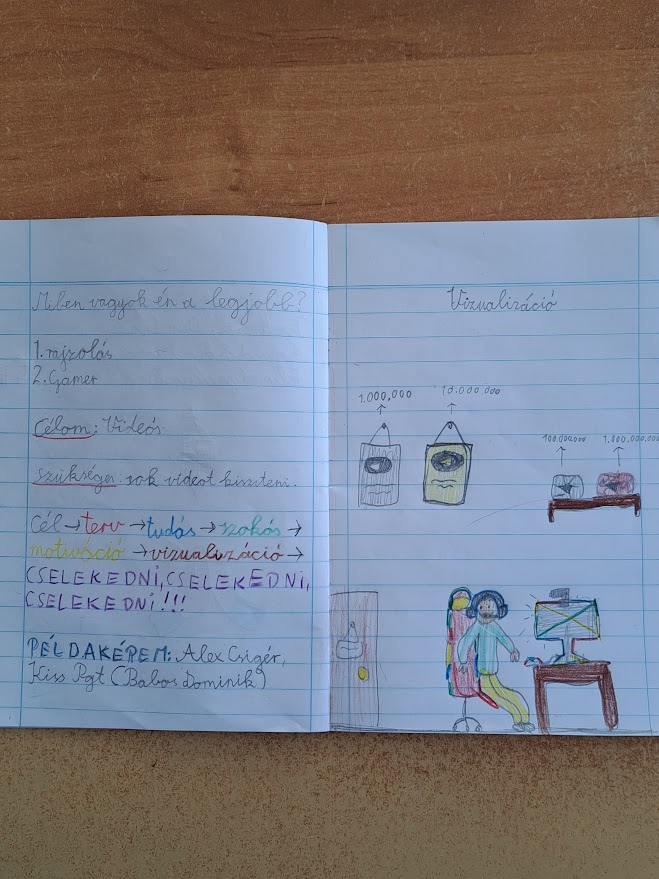 Miben vagyok én a legjobb?
1. rajzolás
2. Gamer
Célom: Videós
Szükséges: sok videót készíteni.
Cél → terv → tudás → szokás →
motiváció → vizualizáció →
CSELEKEDNI, CSELEKEDNI,
CSELEKEDNI!!!
PÉLDAKÉPEM: Alex Csigér,
Kiss Pgt (Babos Dominik)
Vizualizáció
1.000,000
10.000.000
100.000.000
1.000,000,000